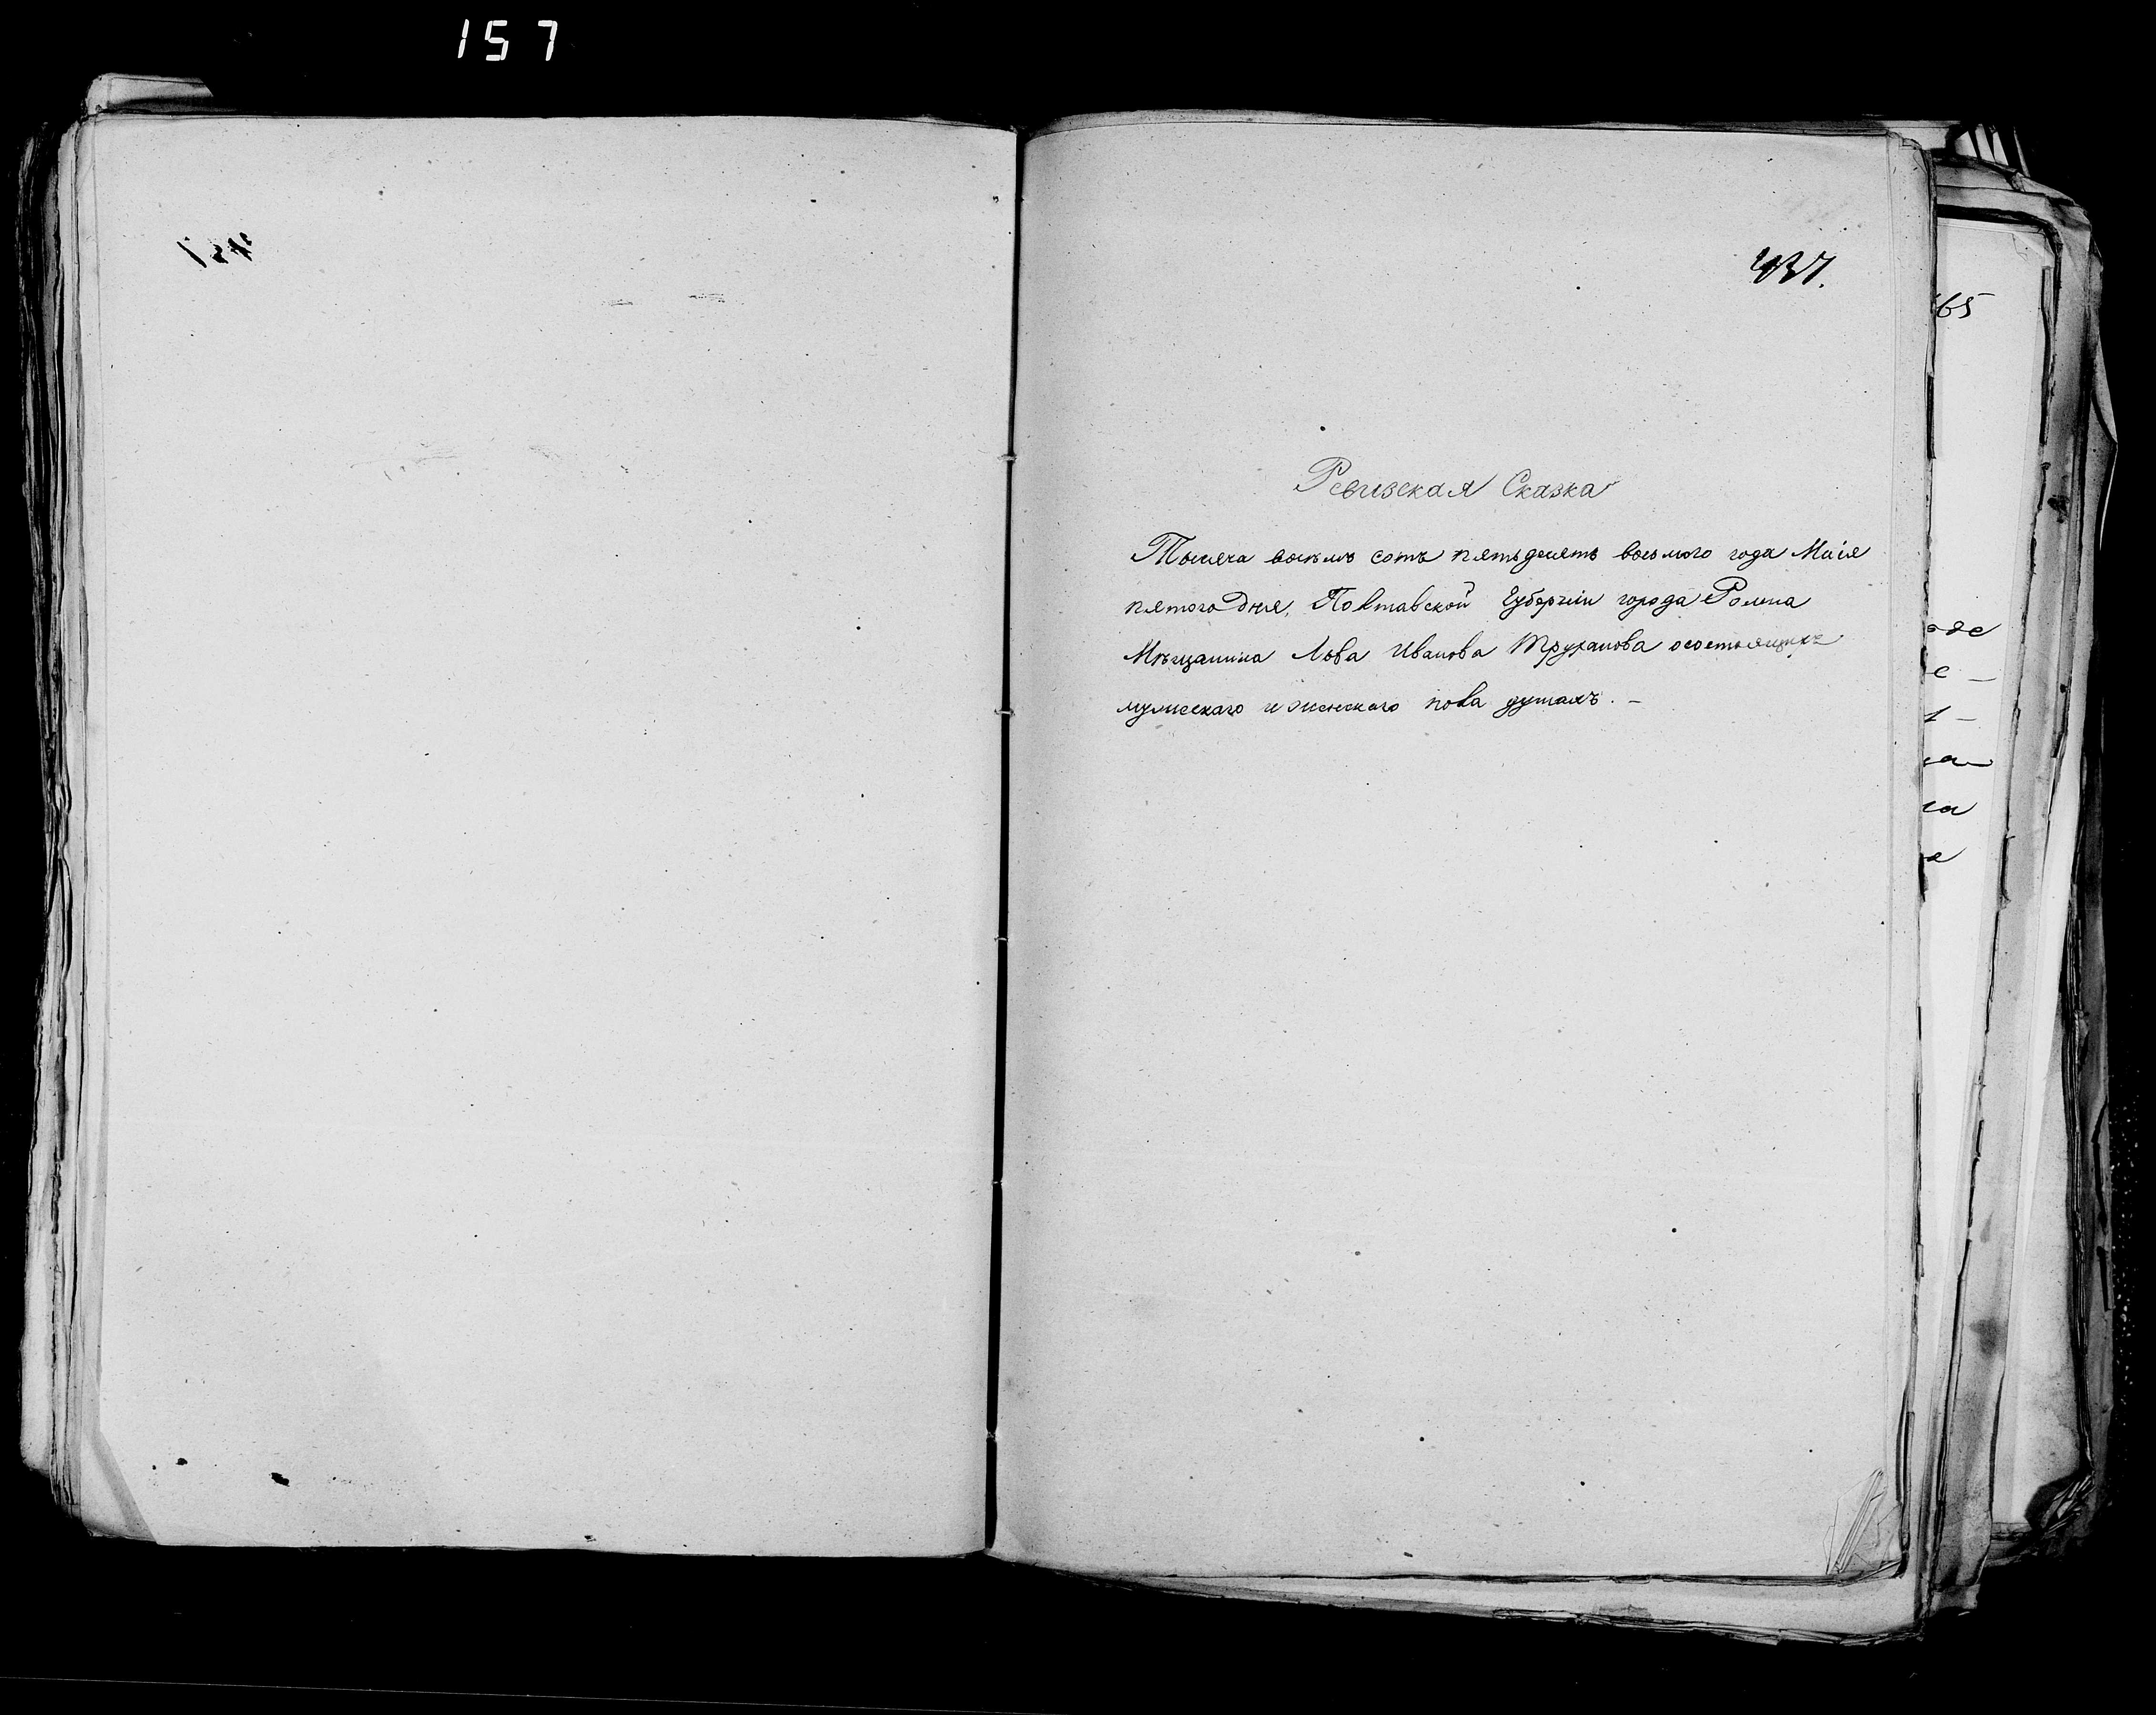 157
437.
Ревизская Сказка
Тысяча восемь сотъ пятьдесятъ восьмого года Маія
пятого дня, Полтавской Губерніи города Ромна
Мѣщанина Льва Иванова Труханова осостоящихъ
мужескаго и женскаго пола душахъ. —
65